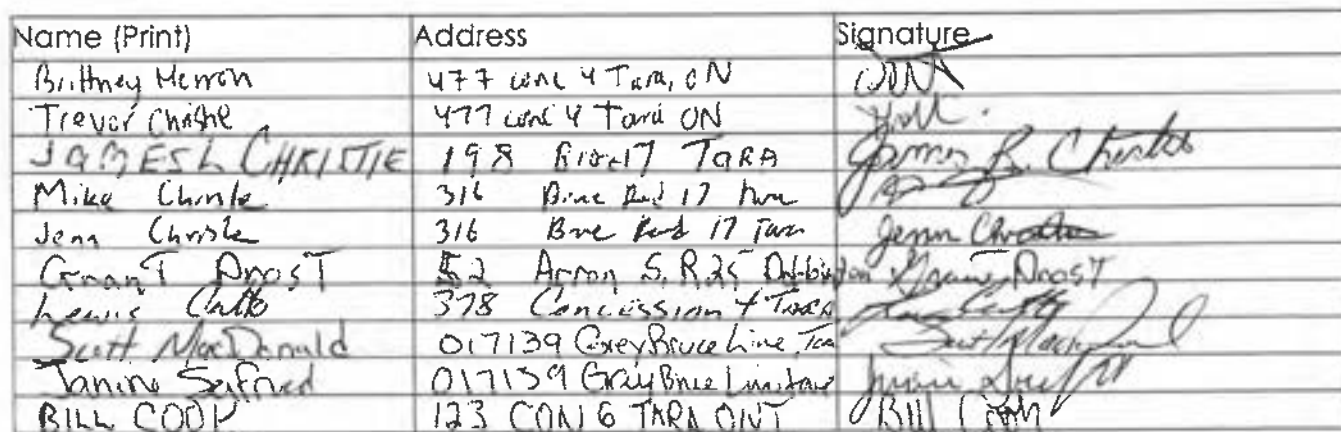 Name (Print) Address Signature
Brittney Herron 477 conc 4 Tara, ON
Trevor Christie 477 conc 4 Tara ON
JAMES L CHRISTIE 198 Bruce 17 TARA James R. Christie
Mike Christie 316 Bruce Road 17 Tara
Jenn Christie 316 Bruce Road 17 Tara Jenn Christie
Grant Drost 52 Arran S.R 25 Grant Drost
Lewis 378 Concession 4 TARA
Scott MacDonald 017139 Grey Bruce Line, Tara Scott MacDonald
Janine Seifried 017139 Grey Bruce Line Tara
BILL COOK 123 CON 6 TARA ONT Bill Cook